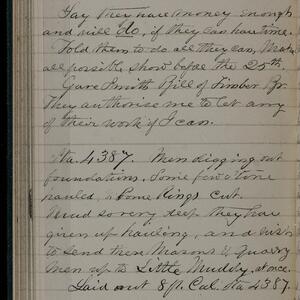 Say they have money enough
and will do, if they can have time.
Told them to do all they can, Make
all possible show before the 25th.
Gave Smith Bill of Timber Br.
They authorise me to let any
of their work if I can.
Sta. 4387. Men digging out
foundations. Some few stone
hauled, & Some Rings cut.
Mud so very deep they have
given up hauling, and wish
to send their Masons & Quarry
Men up to Little Muddy, at once.
Laid out 8 ft. Cul. Sta 4387.